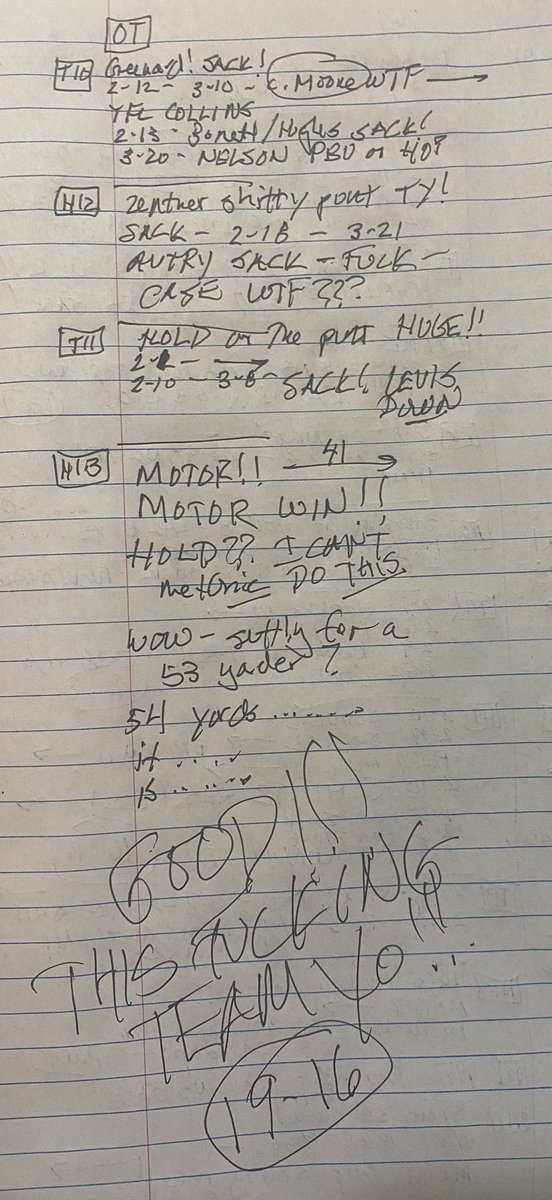 OT
T10 Greenard! SACK!
2-12 - 3-10 - C. Moore WTF →
YFL COLLINS
2-13 - / SACK!
3-20 - NELSON PBU or
H12 Zentner shitty punt TY!
SACK - 2-18 - 3-21
AUTRY SACK - FOLK -
CASE WTF???
T11 HOLD on The punt HUGE!!
2-10 - 3-8 - SACK! LEVIS
DOWN
H13 MOTOR!! 41 →
MOTOR WIN!!
HOLD?? I CAN'T
DO THIS.
WOW - for a
53 yader?
54 yards ........
it .....
is ......
GOOD!!
THIS FUCKING
TEAM YO!!
19-16